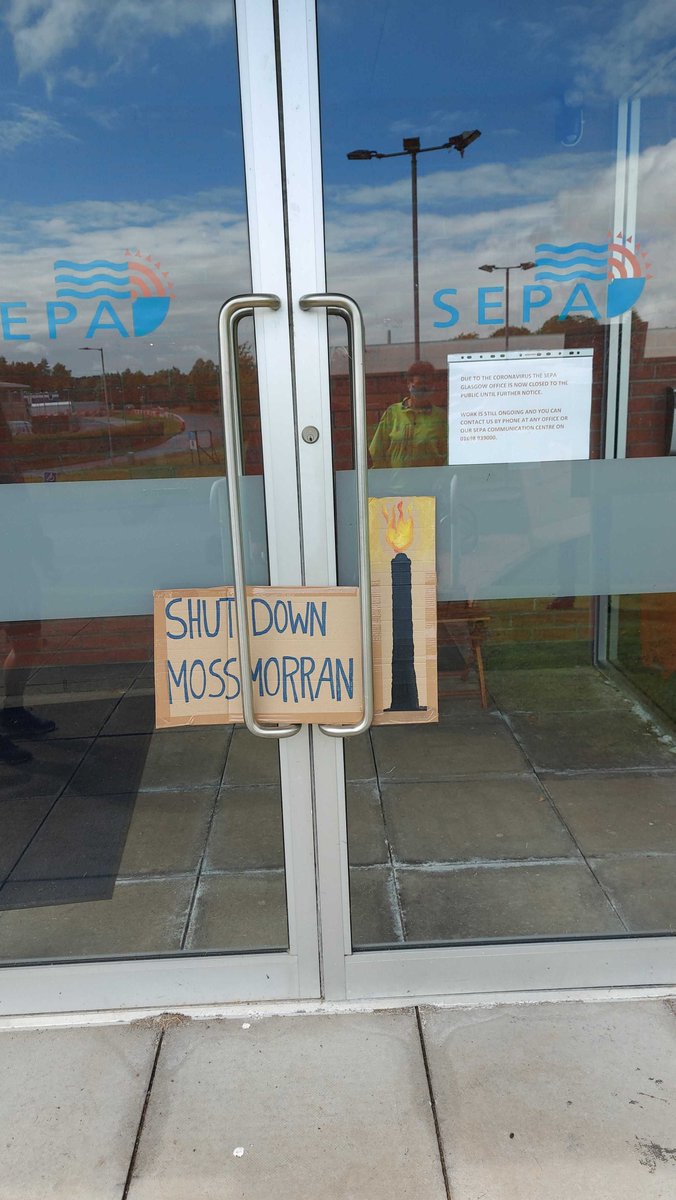 SEPA
SEPA
DUE TO THE CORONAVIRUS THE SEPA
GLASGOW OFFICE IS NOW CLOSED TO THE
PUBLIC UNTIL FURTHER NOTICE.
WORK IS STILL ONGOING AND YOU CAN
CONTACT US BY PHONE AT ANY OFFICE OR
OUR SEPA COMMUNICATION CENTRE ON
SHUT DOWN
MOSSMORRAN